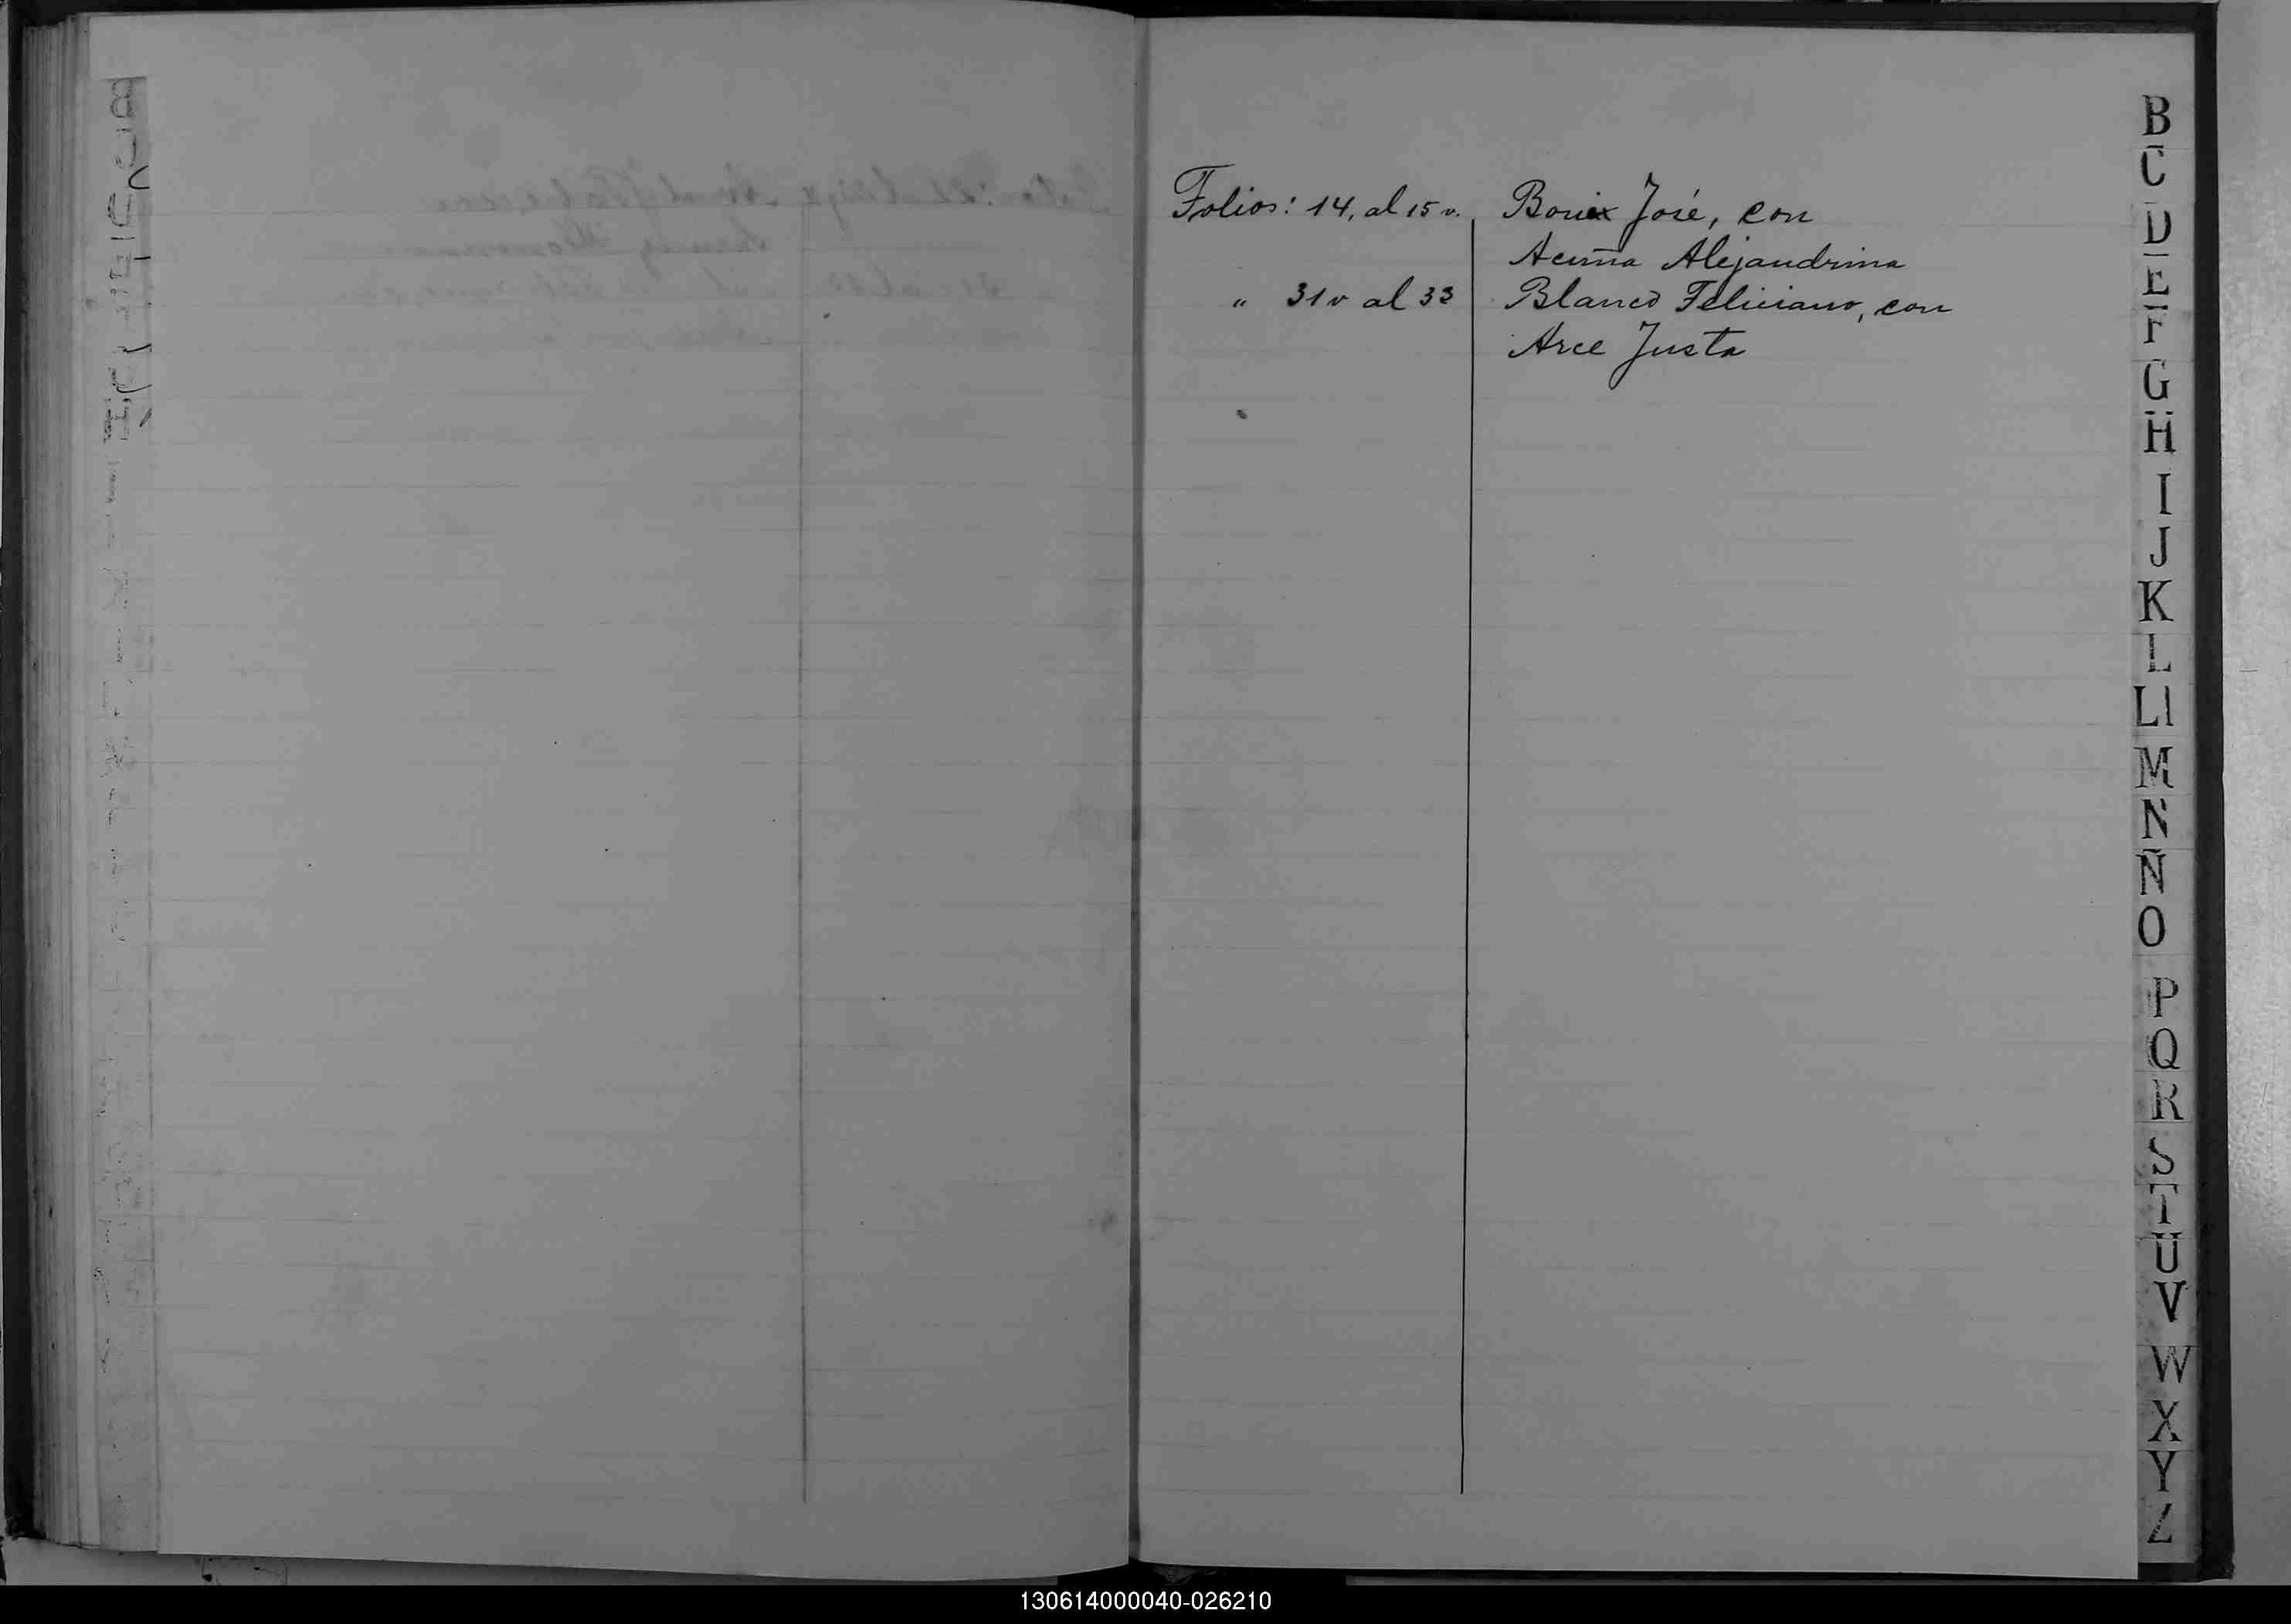 Folios: 14, al 15 v. Bonix José, con
Acuña Alejandrina
" 31 v al 33 Blanco Feliciano, con
Arce Justa
B
C
D
E
F
G
H
I
J
K
L
Ll
M
N
Ñ
O
P
Q
R
S
T
U
V
W
X
Y
Z
130614000040-026210